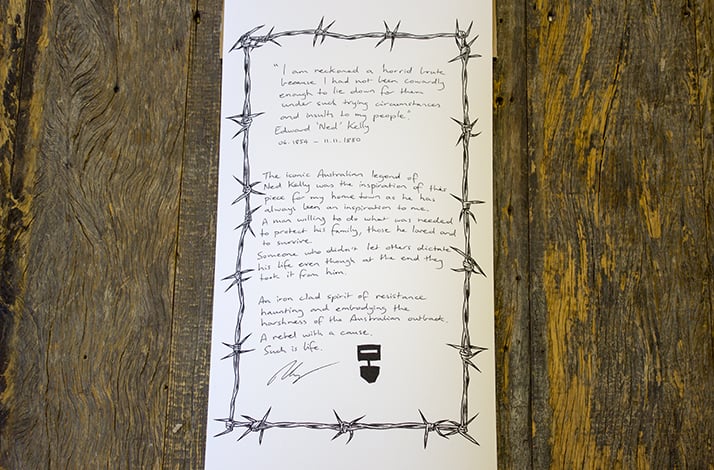 "I am reckoned a horrid brute
because I had not been cowardly
enough to lie down for them
under such trying circumstances
and insults to my people".
Edward 'Ned' Kelly
06.1854 - 11.11.1880
The iconic Australian legend of
Ned Kelly was the inspiration of this
piece for my home town as he has
always been an inspiration to me.
A man willing to do what was needed
to protect his family, those he loved and
to survive.
Someone who didn't let others dictate
his life even though at the end they
took it from him.
An iron clad spirit of resistance
haunting and embodying the
harshness of the Australian outback.
A rebel with a cause.
Such is life.